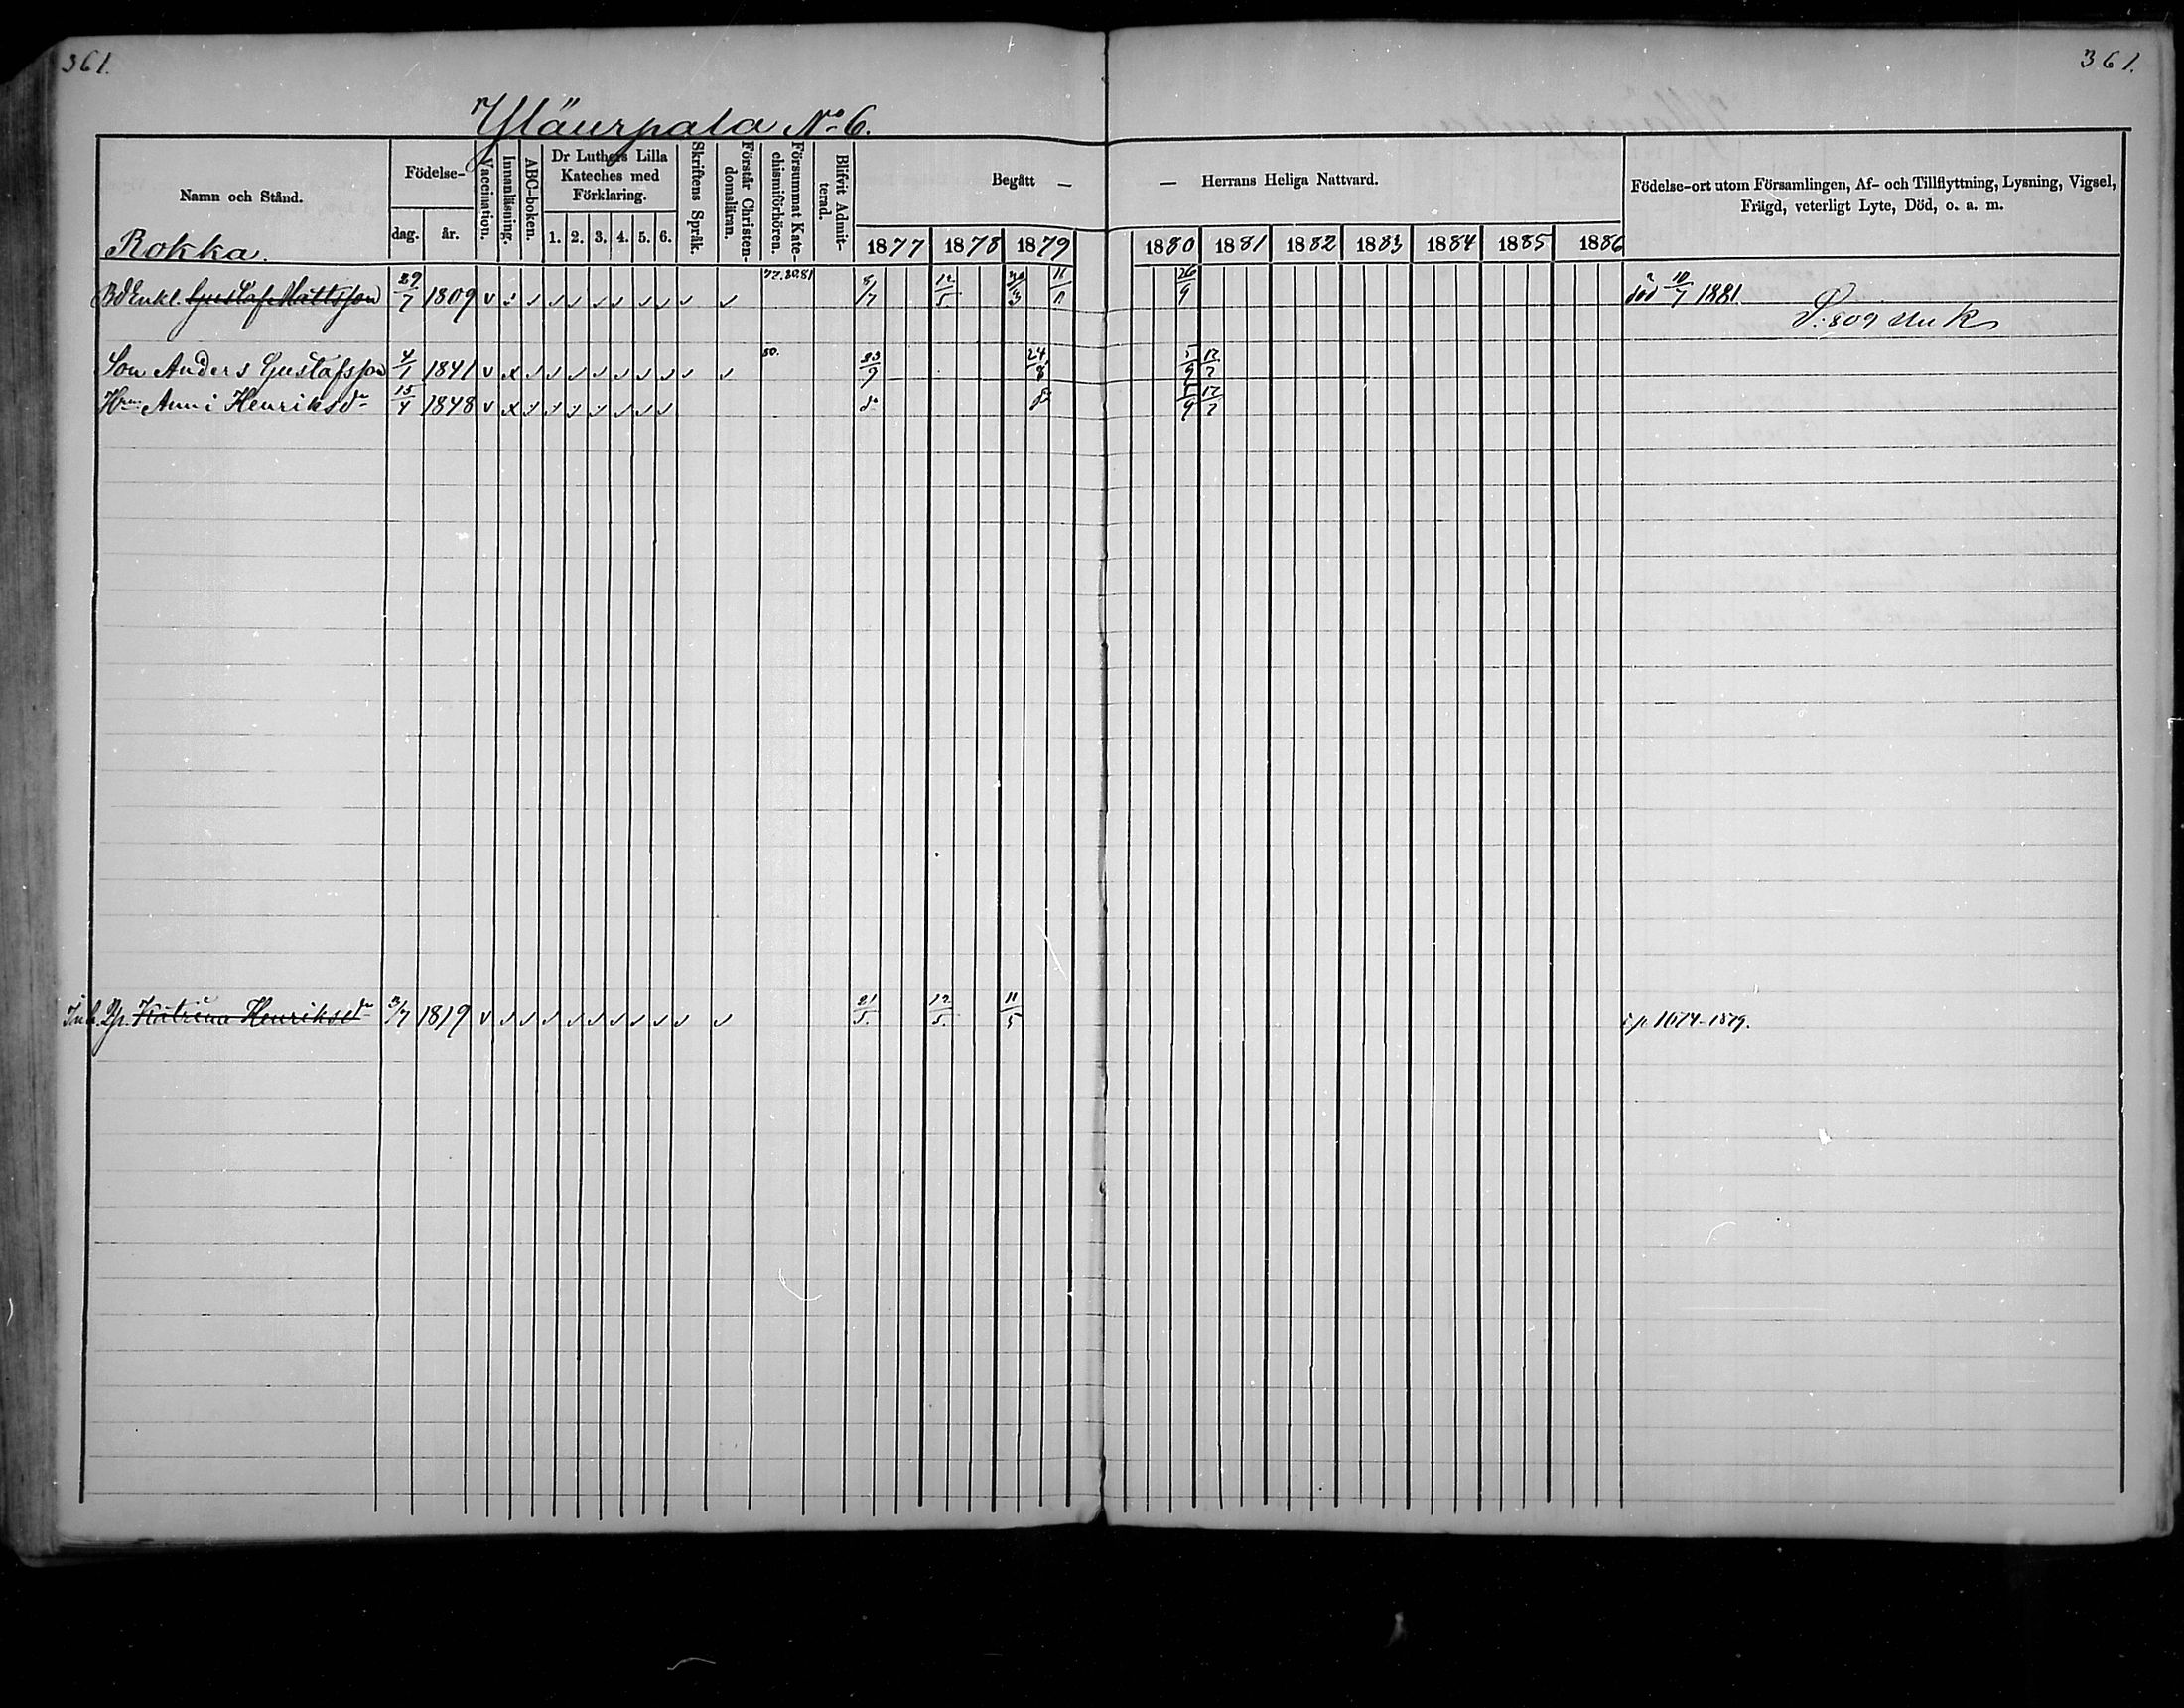 361.
361.
Yläurpala No 6.
Namn och Stånd.
Födelse-
dag.
år.
Vaccination.
Innanläsning.
ABC-boken.
Dr Luthers Lilla Kateches med Förklaring.
1. 2. 3. 4. 5. 6.
Skriftens Språk.
Förstår Christendomsläran.
Försummat Katechismiförhören.
Blifvit Admitterad.
Begått —
— Herrans Heliga Nattvard.
1877 1878 1879 1880 1881 1882 1883 1884 1885 1886
Födelse-ort utom Församlingen, Af- och Tillflyttning, Lysning, Vigsel,
Frägd, veterligt Lyte, Död, o. a. m.
Rokka.
Bd Enkl. Gustaf Mattsson 29/7 1809 v 77.80.81 8/7 12/5 30/3 11/11 26/9 död 10/7 1881.
Son Anders Gustafsson 4/1 1841 v x 80. 23/9 24/8 5/9 12/2
Hru Anni Henriksdr 15/4 1848 v x do do 5/9 12/2
Inh. Pig. Katrina Henriksdr 3/7 1819 v 21/5. 12/5. 11/5 i p. 1674-1879.